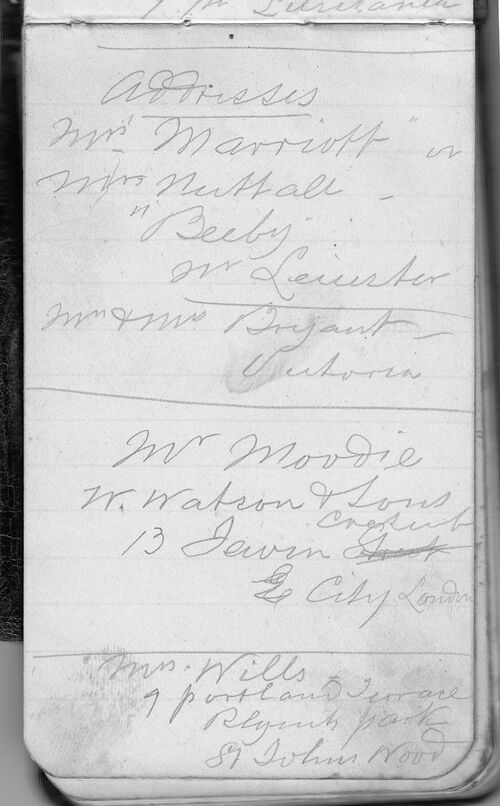 Lusitania
Addresses
Mrs Marriott" or
Mrs Nuttall -
"Beeby"
nr Leicester
Mr & Mrs Bryant -
Victoria
Mr Moodie
W. Watson & Sons
Crescent
13 Jewin Street
E City London
Mrs. Wills -
9 portland Terrace
park
St Johns Wood